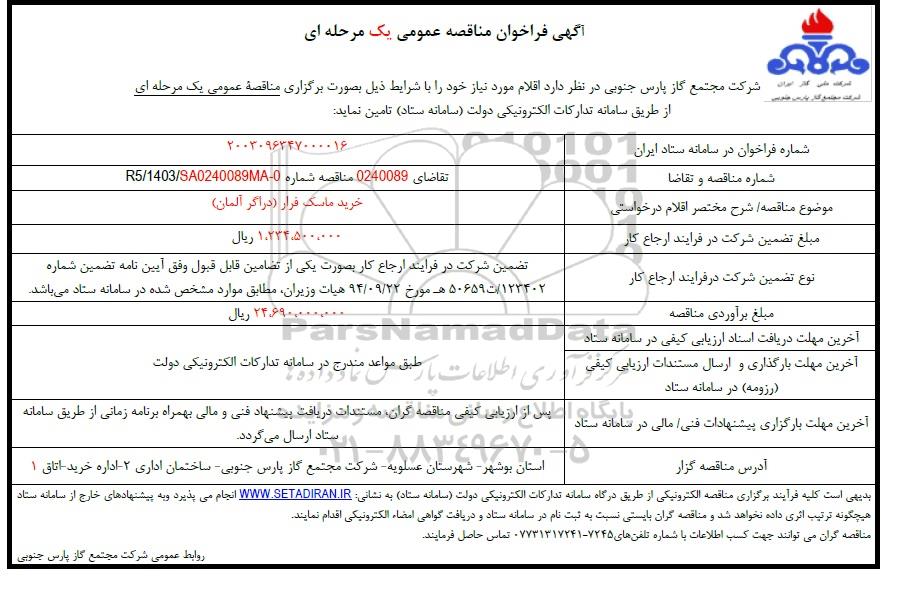 آگهی فراخوان مناقصه عمومی یک مرحله ای
شرکت ملی گاز ایران
شرکت مجتمع گاز پارس جنوبی
شرکت مجتمع گاز پارس جنوبی در نظر دارد اقلام مورد نیاز خود را با شرایط ذیل بصورت برگزاری مناقصهٔ عمومی یک مرحله ای
از طریق سامانه تدارکات الکترونیکی دولت (سامانه ستاد) تامین نماید:
شماره فراخوان در سامانه ستاد ایران
۲۰۰۳۰۹۶۳۴۷۰۰۰۰۱۶
شماره مناقصه و تقاضا
تقاضای 0240089 مناقصه شماره R5/1403/SA0240089MA-0
موضوع مناقصه/ شرح مختصر اقلام درخواستی
خرید ماسک فرار (دراگر آلمان)
مبلغ تضمین شرکت در فرایند ارجاع کار
۱،۲۳۴،۵۰۰،۰۰۰ ریال
نوع تضمین شرکت درفرایند ارجاع کار
تضمین شرکت در فرایند ارجاع کار بصورت یکی از تضامین قابل قبول وفق آیین نامه تضمین شماره
۱۲۳۴۰۲/ت۵۰۶۵۹ هـ مورخ ۹۴/۰۹/۲۲ هیات وزیران، مطابق موارد مشخص شده در سامانه ستاد می‌باشد.
مبلغ برآوردی مناقصه
۲۴،۶۹۰،۰۰۰،۰۰۰ ریال
آخرین مهلت دریافت اسناد ارزیابی کیفی در سامانه ستاد
آخرین مهلت بارگذاری و ارسال مستندات ارزیابی کیفی
(رزومه) در سامانه ستاد
طبق مواعد مندرج در سامانه تدارکات الکترونیکی دولت
آخرین مهلت بارگزاری پیشنهادات فنی/ مالی در سامانه ستاد
پس از ارزیابی کیفی مناقصه گران، مستندات دریافت پیشنهاد فنی و مالی بهمراه برنامه زمانی از طریق سامانه
ستاد ارسال می‌گردد.
آدرس مناقصه گزار
استان بوشهر- شهرستان عسلویه- شرکت مجتمع گاز پارس جنوبی- ساختمان اداری ۲-اداره خرید-اتاق ۱
بدیهی است کلیه فرآیند برگزاری مناقصه الکترونیکی از طریق درگاه سامانه تدارکات الکترونیکی دولت (سامانه ستاد) به نشانی: WWW.SETADIRAN.IR انجام می پذیرد وبه پیشنهادهای خارج از سامانه ستاد
هیچگونه ترتیب اثری داده نخواهد شد و مناقصه گران بایستی نسبت به ثبت نام در سامانه ستاد و دریافت گواهی امضاء الکترونیکی اقدام نمایند.
مناقصه گران می توانند جهت کسب اطلاعات با شماره تلفن‌های۷۲۴۵-۰۷۷۳۱۳۱۷۲۴۱ تماس حاصل فرمایند.
روابط عمومی شرکت مجتمع گاز پارس جنوبی
ParsNamadData
مرکز فرآوری اطلاعات پارس نماد داده ها
۰۲۱-۸۸۳۴۹۶۷۰-۵